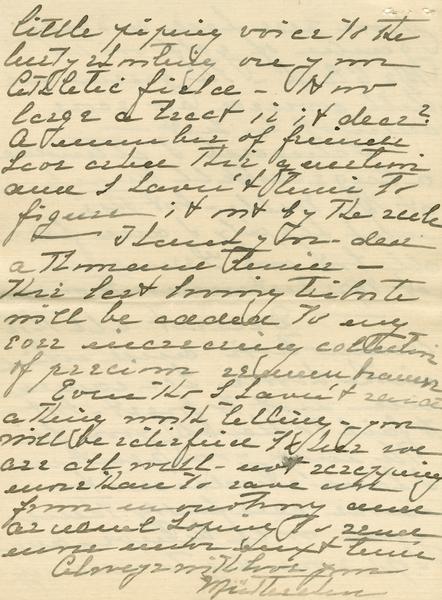 little piping voice to the
lusty shouting on your
Athletic field - How
large a tract is it dear?
A number of friends
have asked this question
and I haven't time to
figure it out by the rule
I thank you - dear
a thousand times -
This last loving tribute
will be added to my
ever increasing collection
of precious remembrances
Even tho I haven't
a thing worth telling - you
will be relieved to hear we
are all well - not
more than to save us
from monotony and
as usual hoping to send
more news next time
Always with love your